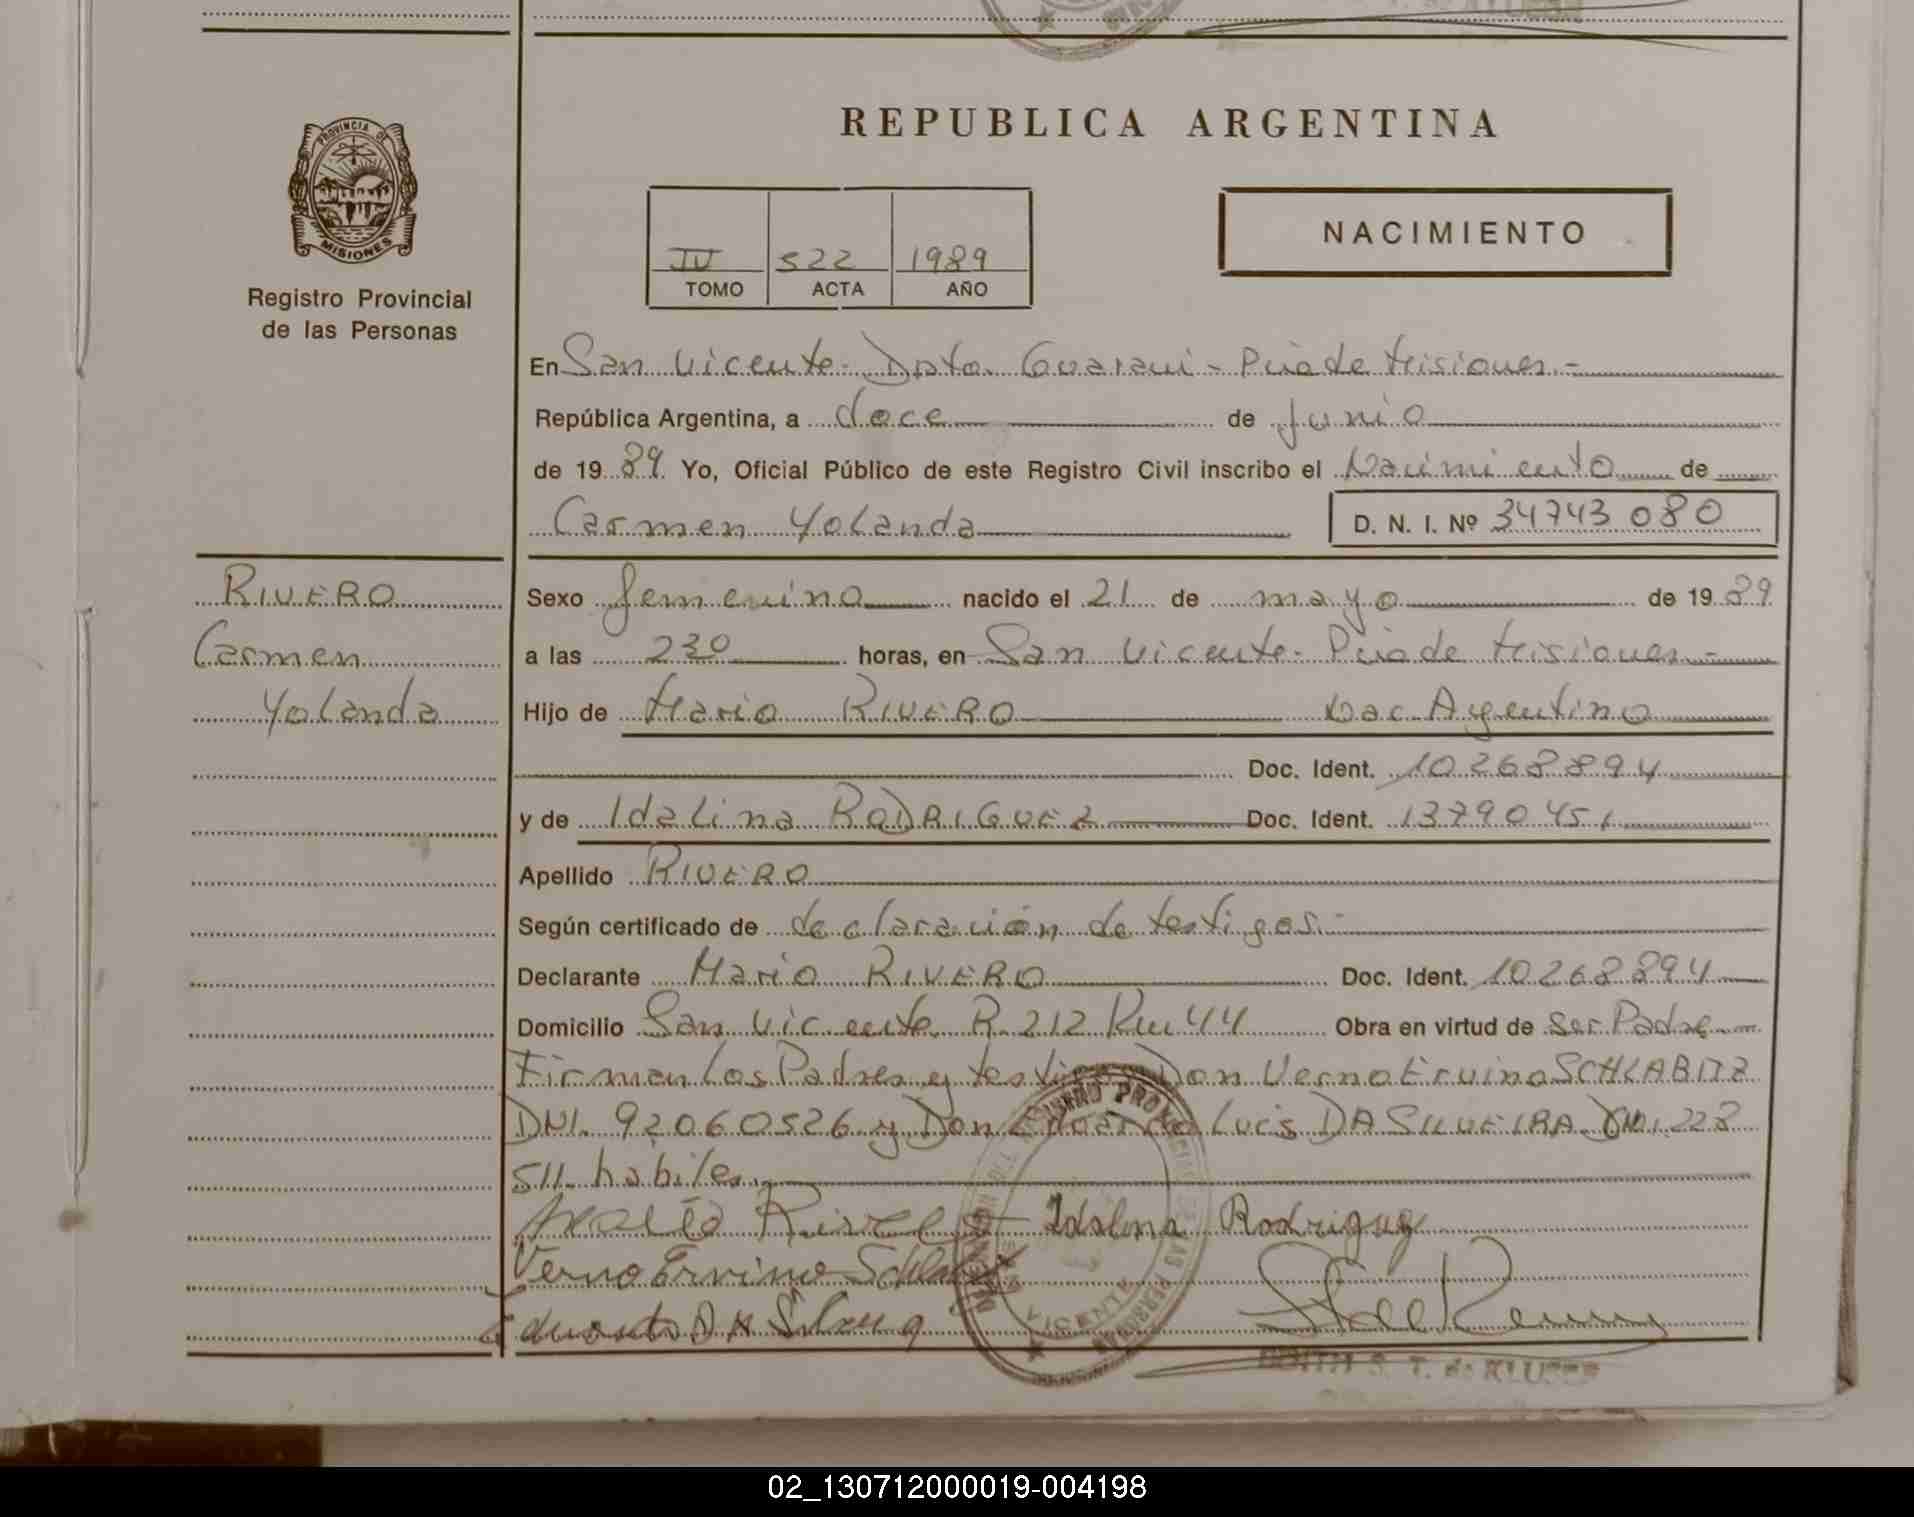 REPUBLICA ARGENTINA
PROVINCIA DE
MISIONES
Registro Provincial
de las Personas
IV 522 1989
TOMO ACTA AÑO
NACIMIENTO
En San Vicente - Dpto. Guarani - Pcia de Misiones.-
República Argentina, a doce de junio
de 1989. Yo, Oficial Público de este Registro Civil inscribo el Nacimiento de
Carmen Yolanda D. N. I. Nº 34743080
RIVERO
Carmen
Yolanda
Sexo femenino nacido el 21 de mayo de 1989
a las 230 horas, en San Vicente - Pcia de Misiones.-
Hijo de Mario RIVERO Nac Argentino
Doc. Ident. 10268894
y de Idalina RODRIGUEZ Doc. Ident. 13790451
Apellido RIVERO
Según certificado de declaración de testigos.-
Declarante Mario RIVERO Doc. Ident. 10268894
Domicilio San Vicente R. 212 Km 44 Obra en virtud de ser Padre
Firman Los Padres y testigos Don Verno Ervino SCHLABITZ
DNI. 92060526 y Don Eduardo Luis DA SILVEIRA DNI. 228
511. habiles.
Mario Rivero Idalina Rodriguez
Verno Ervino
Eduardo DA Silveira
VICENTE
T. de KLUSER
02_130712000019-004198